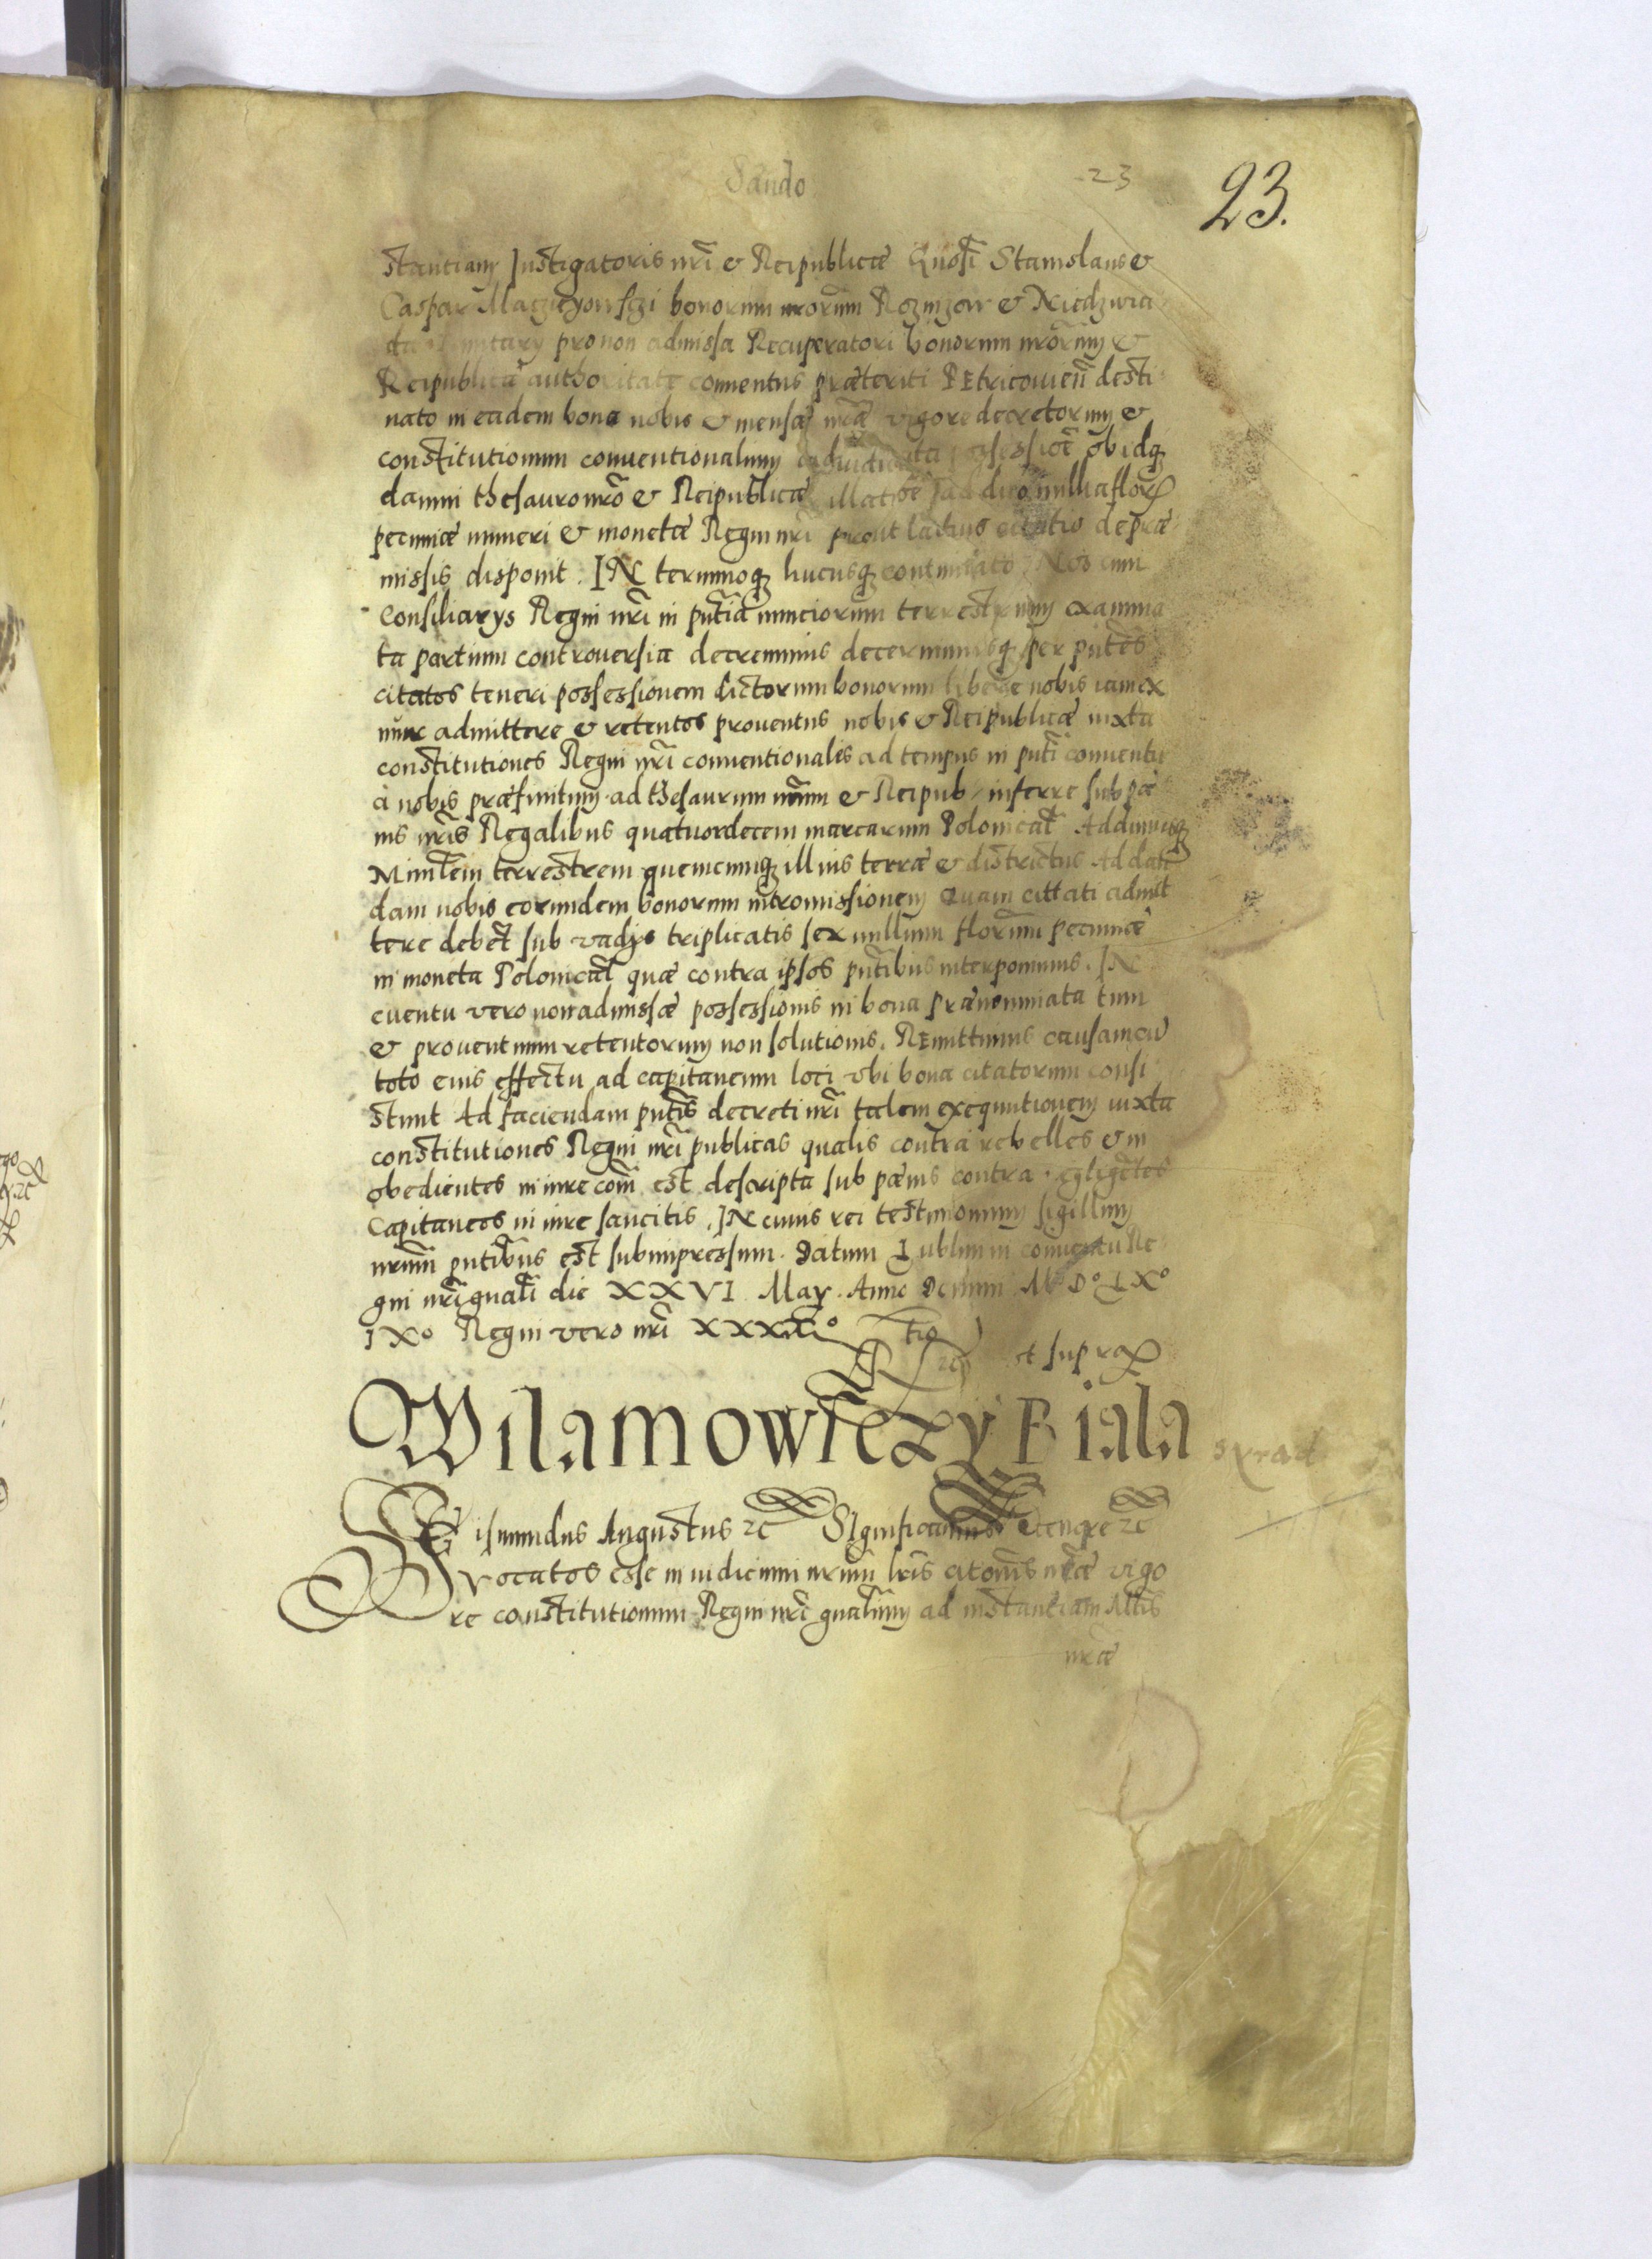 Sando
23
23.
stantiam Instigatoris nri & Reipublicæ Gnosi Stanislaus &
Caspar bonorum nrorum &
pro non admissa Recuperatori bonorum nrorum &
Reipublicæ authoritate conuentus præteriti PEtricouien desti
nato in eadem bona nobis & mensæ nræ vigore decretorum &
constitutionum conuentionalium possessioe ob idq
damni thesauro nro & Reipublicæ illatioe millia florx
pecuniæ numeri & monetæ Regni nri prout latius citatio de præ
missis disponit. IN terminoq hucusq continuato Nos cum
Consiliarys Regni nri in pntia nunciorum terrestrium examina
ta partium controuersia decreuimus decernimusq per pntes
citatos teneri possessionem dictorum bonorum libere nobis iam ex
nunc admittere & retentos prouentus nobis & Reipublicæ iuxta
constitutiones Regni nri conuentionales ad tempus in pnti conuentu
à nobis præfinitum ad thesaurum nrum & Reipub inferre sub pæ
nis nris Regalibus quatuordecem marcarum Polonical Addimusq
Minlem terrestrem quemcunq illius terræ & districtus Ad dan
dam nobis eorundem bonorum intromissionem Quam cittati admit
tere debet sub vadys triplicatis sex millium florum pecuniæ
in moneta Polonical quæ contra ipsos pntibus interponimus. IN
euentu vero non admissæ possessionis in bona prænominata tum
& prouentuum retentorum non solutionis. REmittimus causam cu
toto eius effectu ad capitaneum loci vbi bona citatorum consi
stunt Ad faciendam pntis decreti nri talem exequutionem iuxta
constitutiones Regni nri publicas qualis contra rebelles & in
obedientes in iure com est descripta sub pænis contra egligetes
Capitaneos in iure sancitis. IN cuius rei testimonium sigillum
nrum pntibus est subimpressum. Datum Lublini in conuentu Re
gni nri gnali die XXVI May. Anno Domini Mo Do LXo
IXo Regni vero nri
tio
ut supra
Wilamowiczy Biala
syrad
Sigismundus Augustus &c SIgnificamus
vocatos esse in iudicium nrum lris citonis nræ vigo
re constitutionum Regni nri gnalium ad instantiam Mtis
nræ